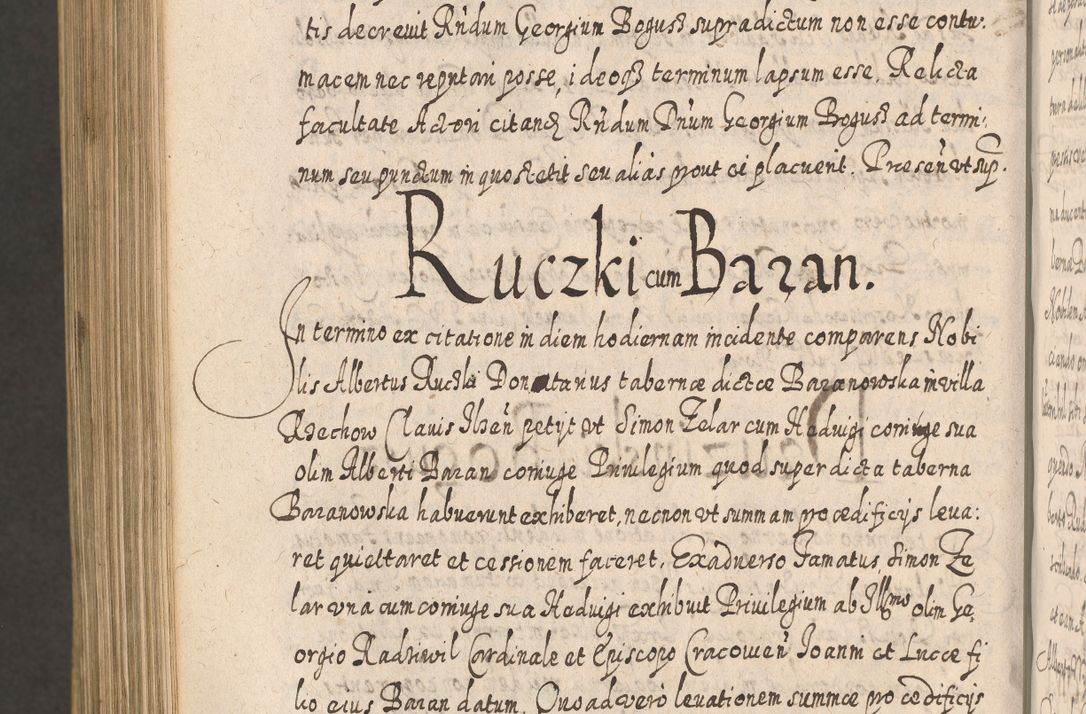 tis decreuit Rńdum Georgium Bogusz supradictum non esse contu:
macem nec reputari posse, ideoqȝ terminum lapsum esse. Relicta
facultate Actori citandȝ Rńdum Dńum Georgium Bogusz ad termi:
num seu punctum in quo stetit seu aliàs prout ei placuerit. Preseń vt sup.
Ruczki cum Baran.
In termino ex citatione in diem hodiernam incidente comparens Nobi
lis Albertus Ruczki Donatarius tabernæ dictæ Baranowska in villa
Rzechow Clauis Ilzeń petyt vt Simon Zelar cum Haduigi coniuge sua
olim Alberti Baran coniuge Priuilegium quod super dicta taberna
Baranowska habuerunt exhiberet, necnon vt summam pro ædificijs leua:
ret quiettaret et cessionem faceret. Exaduerso Famatus Simon Ze
lar vna cum coniuge sua Haduigi exhibuit Priuilegium ab Illmo olim Ge,
orgio Radziwil Cardinale et Episcopo Cracouień Joanni et Luccæ fi
lio eius Baran datum. Quo ad verò leuationem summæ pro ædificijs